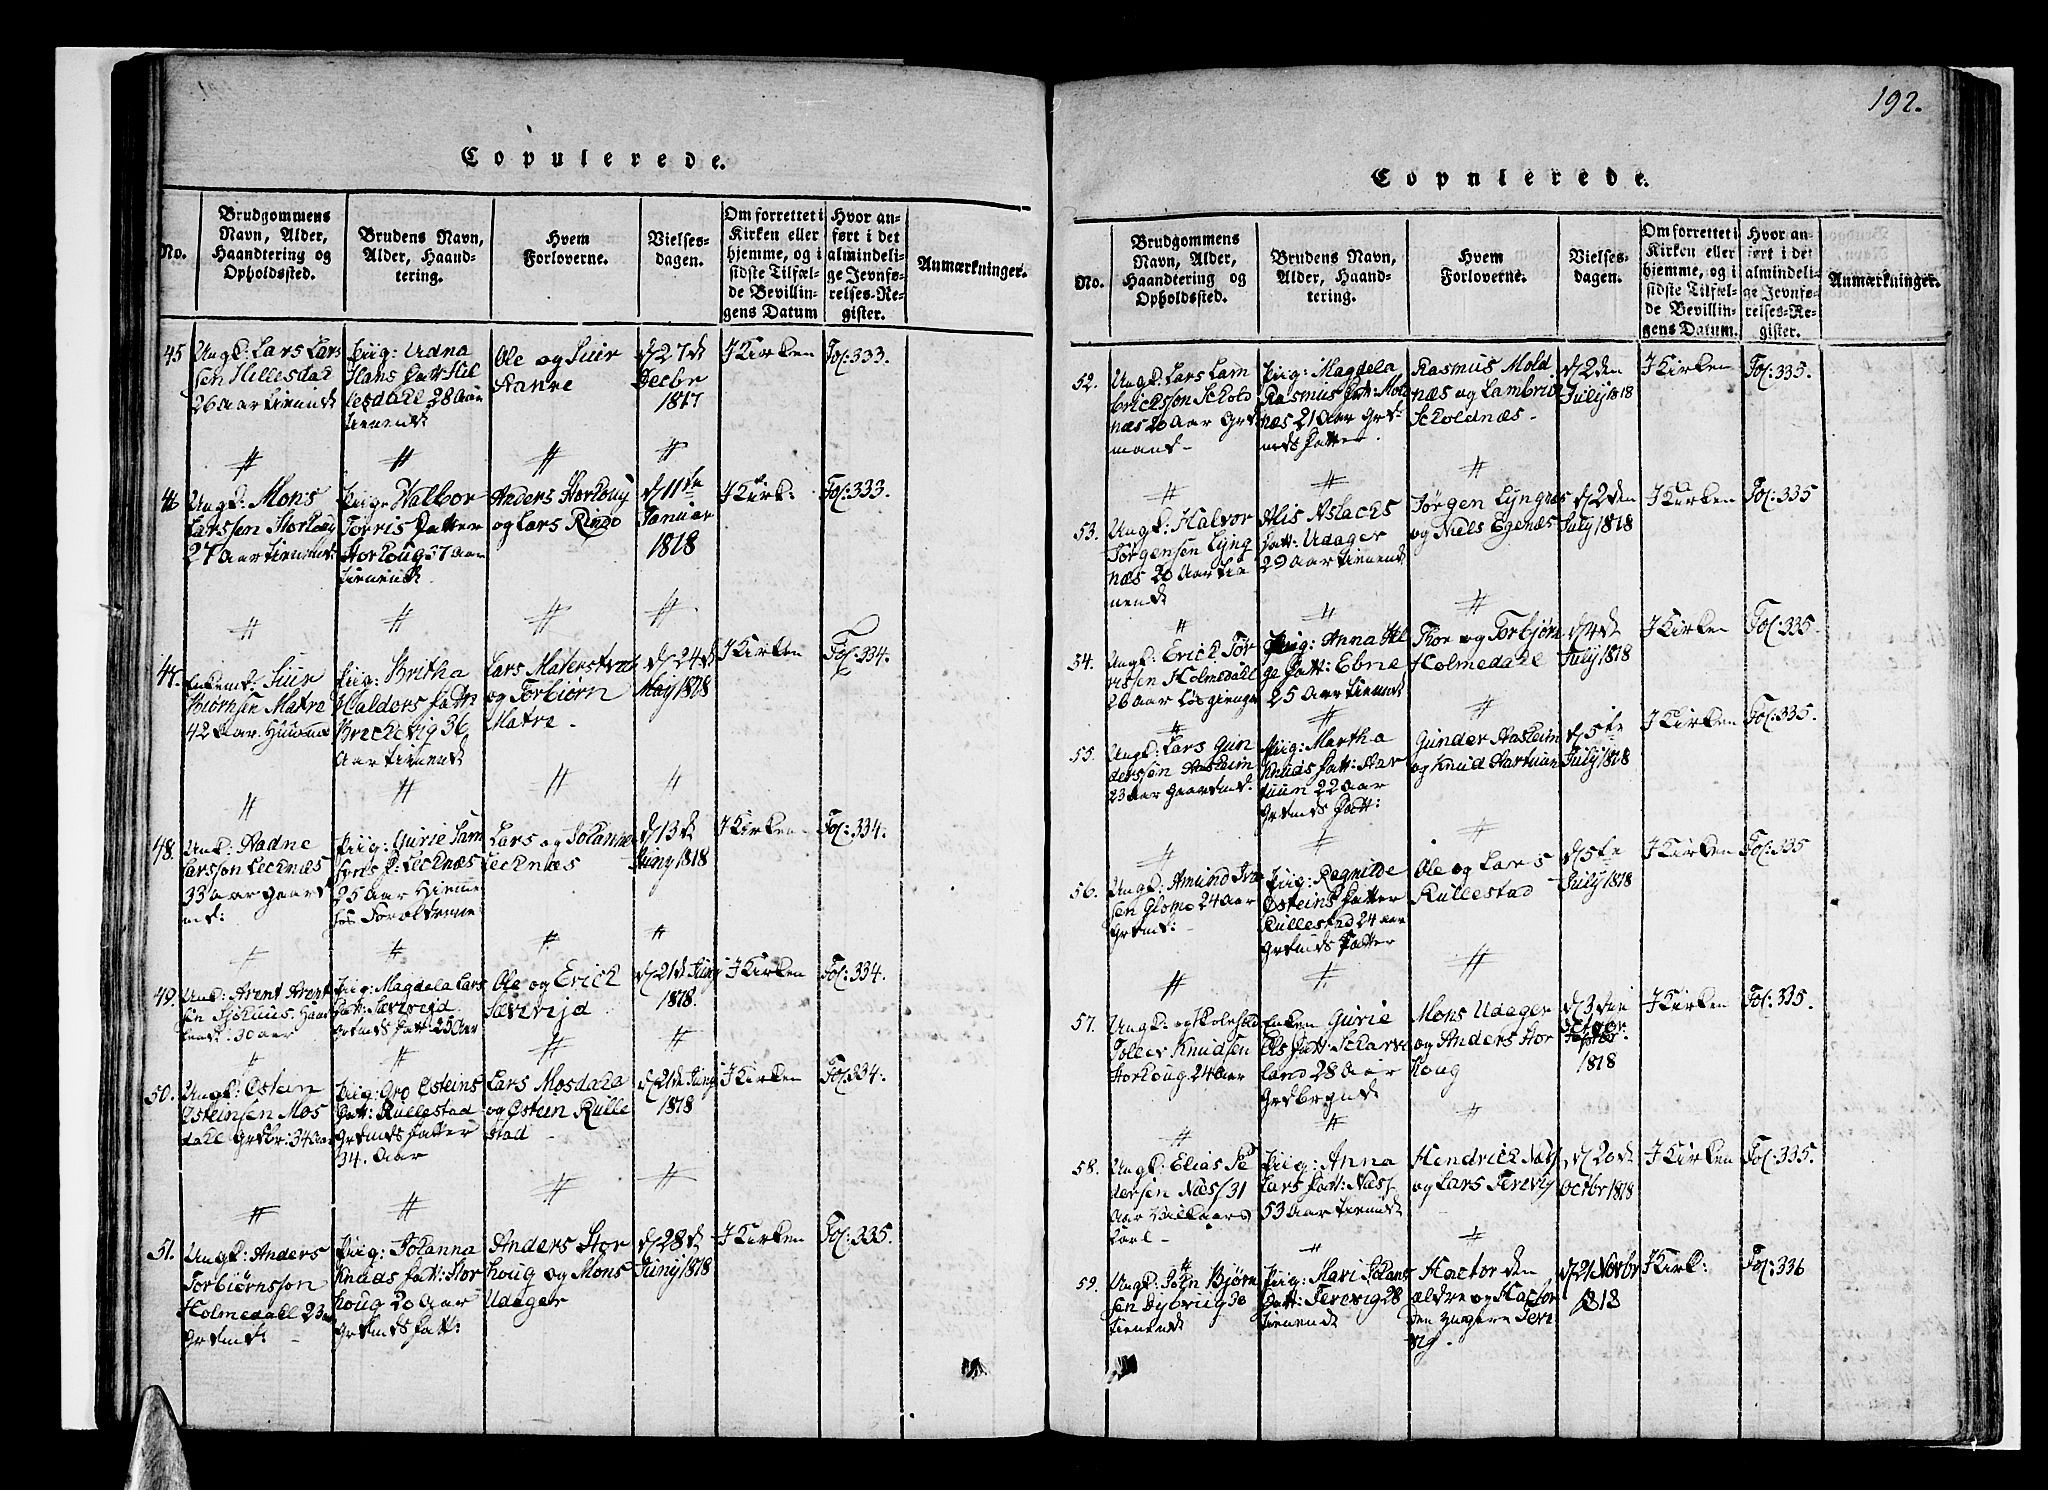 192.
Copulerede.
No.
Brudgommens
Navn, Alder,
Haandtering og
Opholdssted.
Brudens Navn,
Alder, Haand-
tering.
Hvem
Forloverne.
Vielses-
dagen.
Om forrettet i
Kirken eller
hjemme, og i
sidste Tilfæl-
de Bevillin-
gens Datum
Hvor an-
ført i det
almindeli-
ge Jevnfø-
relses-Re-
gister.
Anmærkninger.
45
Ungk: Lars Lar
sen Hillesdahl
26 Aar tienende
Piig: Udna
Hans Datt: Hil
lesdahl 28 Aar
tienende
Ole og Siur
d/ 27 d
Decbr
1817
I Kirken
Fol: 333.
46
Ungk: Mons
Larssen Storhoug
27 Aar tienende
Pige Valbor
Torris Datter
Storhoug 37 Aar
tienende
Anders Storhoug
og Lars Rindo
d/ 11te
Januar
1818
I Kirk:
Fol: 333.
47.
Enkemd: Siur
Biørnsen Matre
42 Aar.
Piig: Britha
Haldors Datt:
Brechevig 36
Aar tienende
Lars Materstrat
og Torbiørn
Matre.
d/ 24 d
May 1818
I Kirken
Fol: 334.
48.
Ungk: Aadne
Larsson Lechnæs
33 Aar Gaard
md:
Piig: Gurie Sam
sons D: Lechnæs
25 Aar Hiemme
hos Forældrene
Lars og Johanne
Lechnæs
d/ 13 d
Juny 1818
I Kirken
Fol: 334.
49.
Ungk: Arent Arent
sen
30 Aar
Piig: Magdela Lars
Datt: Særevigd
Grdmds Datt: 25 Aar
Ole og Erich
Særevijd
d/ 21 d Juny
1818.
I Kirken
Fol: 334.
50.
Ungk: Ostein
Osteinsen Mos
dahl Grdbr: 34 Aar
Piig: Gro Osteins
Datt: Rullestad
Grdmds Datter
34. Aar
Lars Mosdahl
og Ostein Rulle
stad
d/ 21 d Juny
1818
I Kirken
Fol: 334.
51.
Ungk: Anders
Torbiørnsson
Holmedahl 23 Aar
Grdmd:
Piig: Johanna
Knuds Datt: Stor
houg 20 Aar
Grdmds Datt:
Anders Stor
houg og Mons
Udager
d/ 28 d
Juny 1818
I Kirken
Fol: 335.
Copulerede.
No.
Brudgommens
Navn, Alder,
Haandtering og
Opholdssted.
Brudens Navn,
Alder, Haand-
tering.
Hvem
Forloverne.
Vielses-
dagen.
Om forrettet i
Kirken eller
hjemme, og i
sidste Tilfæl-
de Bevillin-
gens Datum.
Hvor an-
ført i det
almindeli-
ge Jevnfø-
relses-Re-
gister.
Anmærkninger.
52.
Ungk: Lars Lam
brichsson Schold
næs 20 Aar Grd
mand
Piig: Magdela
Rasmus Datt: Mold
næs 21 Aar Grd
mds Datter.
Rasmus Mold
næs og Lambric
Scholdnæs
d/ 2 den
July 1818
I Kirken
Fol: 335.
53.
Ungk: Halvor
Jørgensen Lyng
næs 20 Aar tie
nende
Alis Aslachs
Datt: Udager
29 Aar tienende
Jørgen Lyngnæs
og Niels Egenæs
d/ 2 den
July 1818
I Kirken
Fol: 335
54.
Ungk: Erich Tør
rissen Holmedahl
26 Aar
Piig: Anna Hel
ge Datt: Ebne
25 Aar tienende
Thor og Torbjørn
Holmedahl
d/ 4 d
July 1818
I Kirken
Fol: 335.
55.
Ungk: Lars Gun
derssen Aasheim
23 Aar Gaardmd.
Piig: Martha
Knuds Datt: Har
tuun 22 Aar
Grdmds Datt:
Gunder Aasheim
og Knud Hartuun
d/ 5te
July 1818
I Kirken
Fol: 335.
56.
Ungk: Amund
sen Glomo 24 Aar
Grdmd:
Piig: Ragnilde
Østeins Datter
Rullestad 24 Aar
Grdmds Datter
Ole og Lars
Rullestad
d/ 5te
July 1818
I Kirken
Fol: 335
57.
Ungk: og Skolehold
Tollev Knudsen
Storhoug 24 Aar
Enken Gurie
Els Datt: Scharve
land 28 Aar
Grdbrgnde
Mons Udager
og Anders Stor
houg
d/ 3
October
1818
I Kirken
Fol: 335.
58.
Ungk: Elias Pe
dersen Næss 31
Aar
Karl
Piig: Anna
Lars Datt: Næss
53 Aar tienende
Hendrich Næss
og Lars Terevig
d/ 20 d
Octbr 1818
I Kirken
Fol: 335.
59.
Ungk: John Bjørn
sen Dybvig 30
tienende
Piig: Mari Johans
Datt: Terevig 28
tienende
Hactor den
ældre og Hactor
den yngere Tere
vig.
d/ 21 Novbr
1818
I Kirk:
Fol: 336